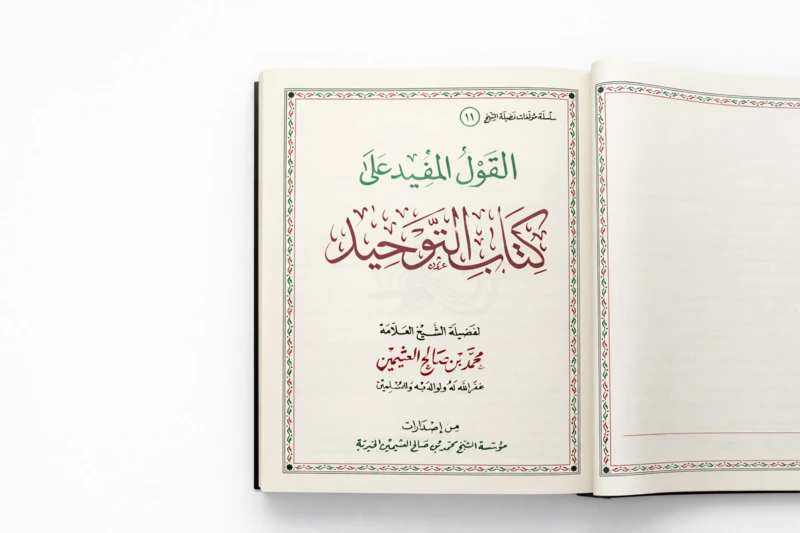 سلسلة مؤلفات فضيلة الشيخ ١١
القَوْلُ المُفِيد عَلَىٰ
كِتَابِ التَّوْحِيد
لفَضِيلَة الشَّيْخ العَلَّامَة
محمَّد بن صَالح العثيمين
غفَر الله لَهُ ولوالدَيْه وللمُسْلِمين
مِن إصْدَارات
مؤسّسة الشيخ محمّد بن صَالح العثيمين الخيرية